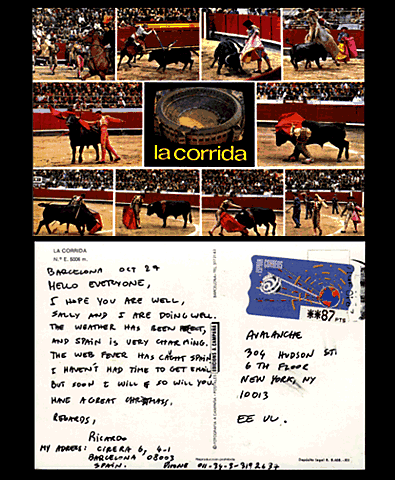 la corrida
LA CORRIDA
N.º E. 5006 m.
BARCELONA OCT 27
HELLO EVERYONE,
I HOPE YOU ARE WELL,
SALLY AND I ARE DOING WELL.
THE WEATHER HAS BEEN
AND SPAIN IS VERY CHARMING.
THE WEB FEVER HAS CAGHT SPAIN
I HAVEN'T HAD TIME TO GET EMAIL
BUT SOON I WILL & SO WILL YOU
HAVE A GREAT CHRISTMASS,
REGARDS,
RICARDO
MY ADRESS: CIRERA 6, 4-1
BARCELONA 08003
SPAIN. PHONE 011-34-3-3192637
CORREOS
**87 PTS
AVALANCHE
304 HUDSON ST.
6 TH FLOOR
NEW YORK, NY
10013
EE UU.